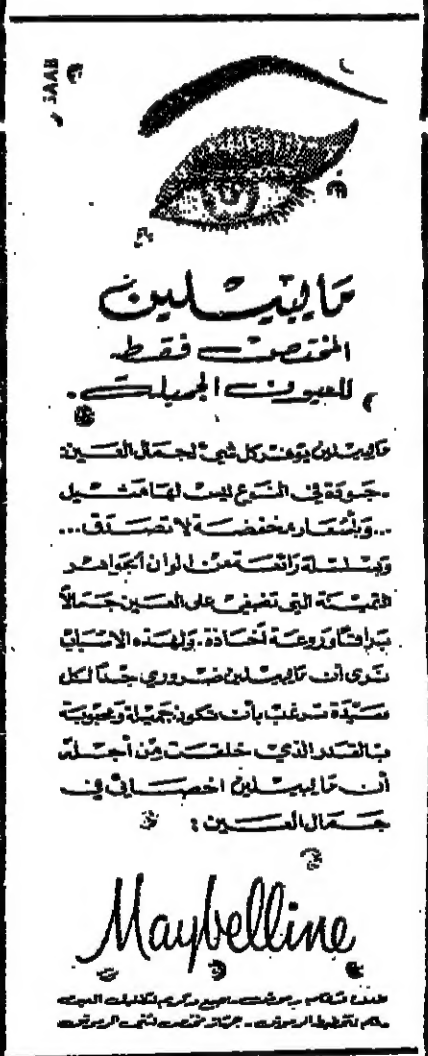 SAAB
مايبيسلين
المختصت فقط
للعيون الجميلة.
مايبيسلين يوفر كل شيء لجمال العين:
جودة في النوع ليس لها مثيل
... وبأسعار منخفضة لا تصدق ...
وبسلسلة رائعة من الوان الجواهر
الثمينة التي تضفي على العين جمالاً
براقاً وروعة أخاذة. ولهذه الاسباب
نرى أن مايبيسلين ضروري جداً لكل
سيدة ترغب بأن تكون جميلة ومحبوبة
بالقدر الذي خلقت من أجله
أن مايبيسلين اخصائي في
جمال العين :
Maybelline